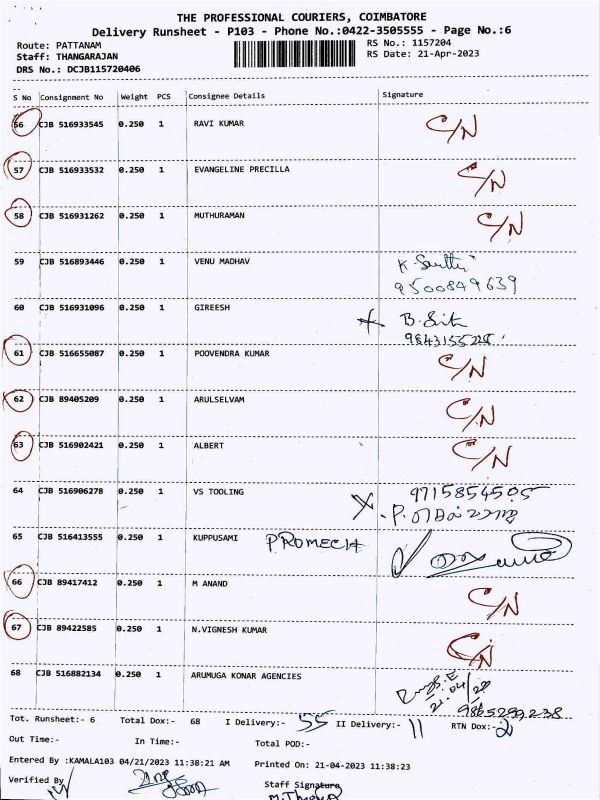 THE PROFESSIONAL COURIERS, COIMBATORE
Delivery Runsheet - P103 - Phone No.:0422-3505555 - Page No.:6
Route: PATTANAM
RS No.: 1157204
Staff: THANGARAJAN
RS Date: 21-Apr-2023
DRS No.: DCJB115720406
S No Consignment No Weight PCS Consignee Details Signature
56 CJB 516933545 0.250 1 RAVI KUMAR C/N
57 CJB 516933532 0.250 1 EVANGELINE PRECILLA C/N
58 CJB 516931262 0.250 1 MUTHURAMAN C/N
59 CJB 516893446 0.250 1 VENU MADHAV K.
9500849639
60 CJB 516931096 0.250 1 GIREESH B.
61 CJB 516655087 0.250 1 POOVENDRA KUMAR C/N
62 CJB 89405209 0.250 1 ARULSELVAM C/N
63 CJB 516902421 0.250 1 ALBERT C/N
64 CJB 516906278 0.250 1 VS TOOLING 9715854505
P.
65 CJB 516413555 0.250 1 KUPPUSAMI PROMECH
66 CJB 89417412 0.250 1 M ANAND C/N
67 CJB 89422585 0.250 1 N.VIGNESH KUMAR C/N
68 CJB 516882134 0.250 1 ARUMUGA KONAR AGENCIES
Tot. Runsheet:- 6 Total Dox:- 68 I Delivery:- 55 II Delivery:- 11 RTN Dox:- 2
Out Time:- In Time:- Total POD:-
Entered By :KAMALA103 04/21/2023 11:38:21 AM Printed On: 21-04-2023 11:38:23
Verified By Staff Signature